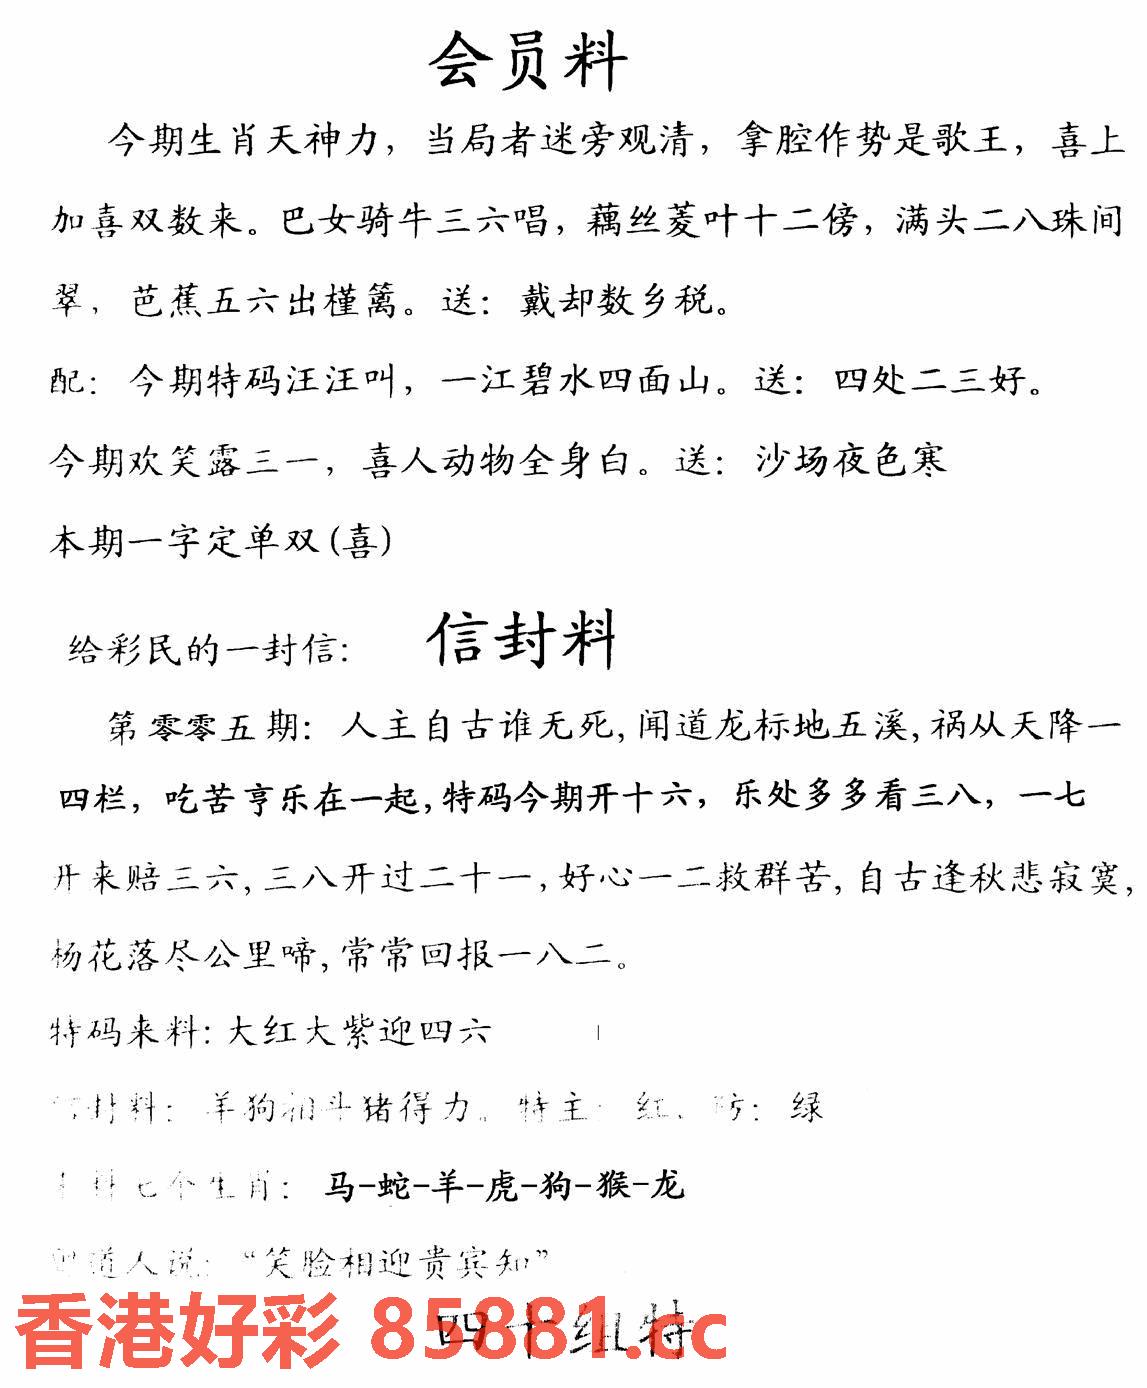 会员料
今期生肖天神力，当局者迷旁观清，拿腔作势是歌王，喜上
加喜双数来。巴女骑牛三六唱，藕丝菱叶十二傍，满头二八珠间
翠，芭蕉五六出槿篱。送：戴却数乡税。
配：今期特码汪汪叫，一江碧水四面山。送：四处二三好。
今期欢笑露三一，喜人动物全身白。送：沙场夜色寒
本期一字定单双(喜)
给彩民的一封信： 信封料
第零零五期：人主自古谁无死,闻道龙标地五溪,祸从天降一
四栏，吃苦亨乐在一起,特码今期开十六，乐处多多看三八，一七
开来赔三六,三八开过二十一,好心一二救群苦,自古逢秋悲寂寞,
杨花落尽公里啼,常常回报一八二。
特码来料:大红大紫迎四六
封料：羊狗相斗猪得力。特主：红、防：绿
料七个生肖：马-蛇-羊-虎-狗-猴-龙
道人说：“笑脸相迎贵宾知”
香港好彩 85881.cc
四十组特